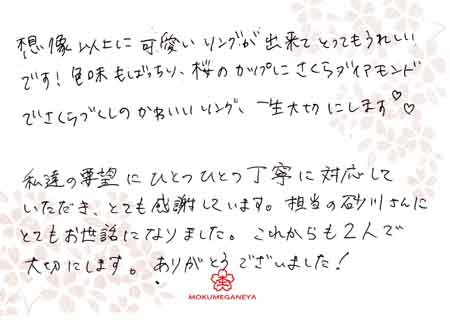 想像以上に可愛いリングが出来てとってもうれしい
です!色味もばっちり、桜のカップにさくらダイアモンド
でさくらづくしのかわいいリング、一生大切にします♡♡
私達の要望にひとつひとつ丁寧に対応して
いただき、とても感謝しています。担当の砂川さんに
とてもお世話になりました。これからも2人で
大切にします。ありがとうございました!
MOKUMEGANEYA